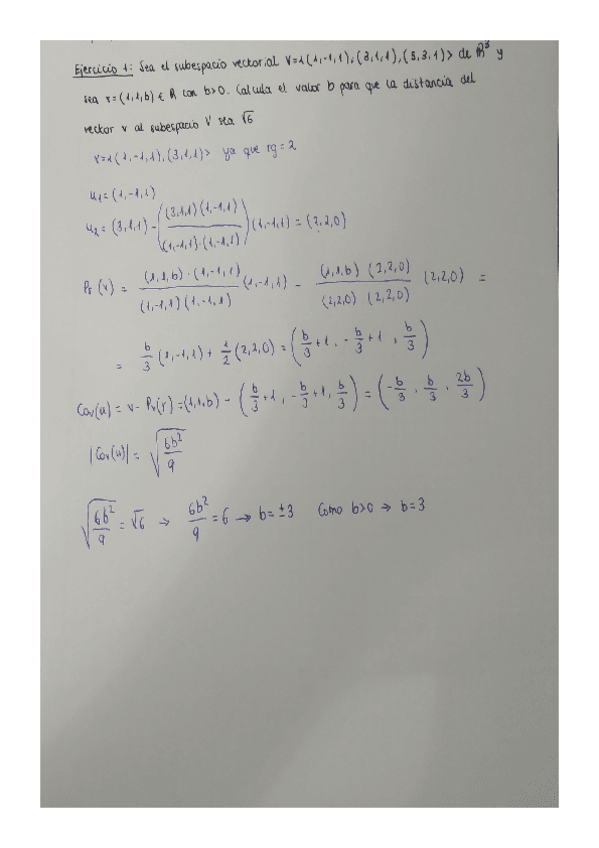 Ejercicio 1: Sea el subespacio vectorial V=<(1,-1,1),(3,1,1),(5,3,1)> de R³ y
sea v=(1,1,b) ∈ R con b>0. Calcula el valor b para que la distancia del
vector v al subespacio V sea √6
V=<(1,-1,1),(3,1,1)> ya que rg=2
u₁=(1,-1,1)
u₂ = (3,1,1) - ((3,1,1)(1,-1,1) / (1,-1,1)·(1,-1,1)) (1,-1,1) = (2,2,0)
Pr(v) = (1,1,b)·(1,-1,1) / (1,-1,1)(1,-1,1) (1,-1,1) - (1,1,b)(2,2,0) / (2,2,0)(2,2,0) (2,2,0) =
= b/3 (1,-1,1) + 1/2 (2,2,0) = (b/3+1, -b/3+1, b/3)
(u) = v - Pv(v) = (1,1,b) - (b/3+1, -b/3+1, b/3) = (-b/3, b/3, 2b/3)
| (u)| = √(6b²/9)
√(6b²/9) = √6 → 6b²/9 = 6 → b=±3 Como b>0 → b=3